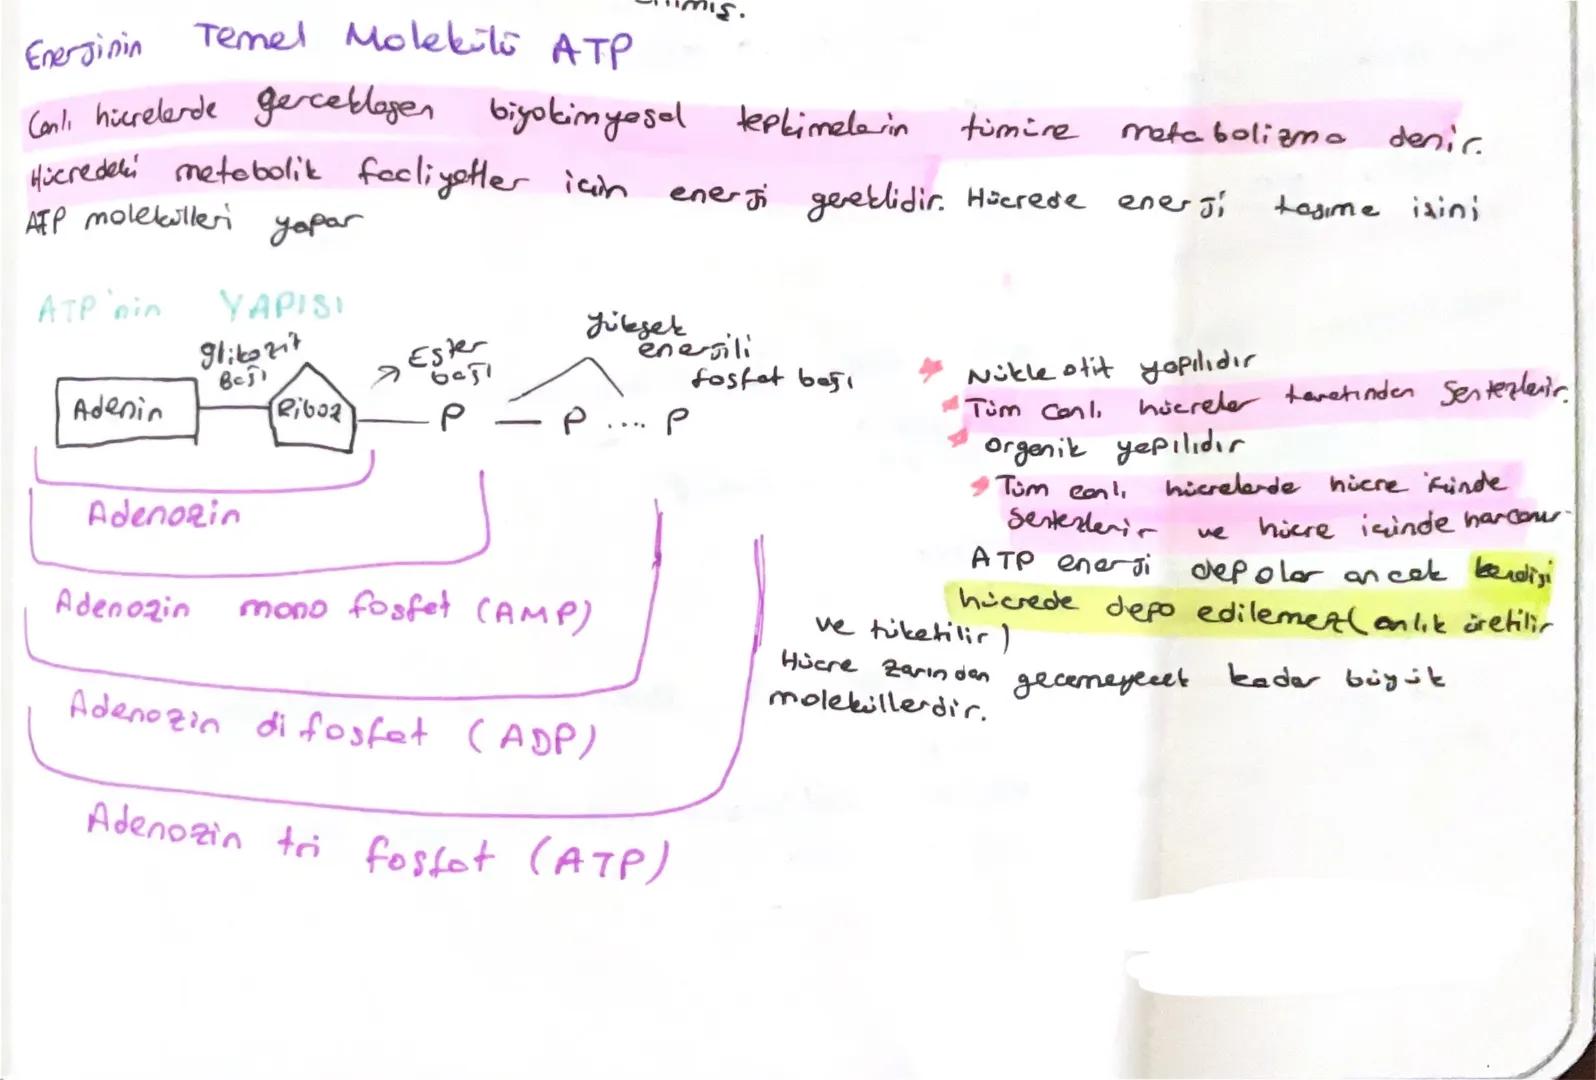 Enerjinin Temel Molekülü ATP
Canlı hücrelerde gerceklaşen biyokimyasal tepkimelerin tümüne metabolizma denir.
Hücredeki metabolik faaliyetler için enerji gereklidir. Hücrede enerji taşıma işini
ATP molekülleri yapar
ATP'nin YAPISI
glikozit
Bağı
Ester
bağı
Yüksek
enerjili
fosfat bağı
Adenin
Riboz
P — P .... P
Adenozin
Adenozin mono fosfat (AMP)
Adenozin di fosfat (ADP)
Adenozin tri fosfat (ATP)
Nükleotit yapılıdır
Tüm canlı hücreler tarafından Sentezlenir.
organik yapılıdır
Tüm canlı hücrelerde hücre içinde
Sentezlenir ve hücre içinde harcanır
ATP enerji depolar ancak kendisi
hücrede depo edilemez(anlık üretilir
ve tüketilir)
Hücre zarından geçemeyecek kadar büyük
moleküllerdir.